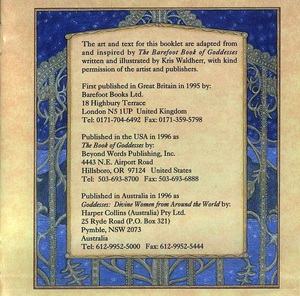 The art and text for this booklet are adapted from
and inspired by The Barefoot Book of Goddesses
written and illustrated by Kris Waldherr, with kind
permission of the artist and publishers.
First published in Great Britain in 1995 by:
Barefoot Books Ltd.
18 Highbury Terrace
London N5 1UP United Kingdom
Tel: 0171-704-6492 Fax: 0171-359-5798
Published in the USA in 1996 as
The Book of Goddesses by:
Beyond Words Publishing, Inc.
4443 N.E. Airport Road
Hillsboro, OR 97124 United States
Tel: 503-693-8700 Fax: 503-693-6888
Published in Australia in 1996 as
Goddesses: Divine Women from Around the World by:
Harper Collins (Australia) Pty Ltd.
25 Ryde Road (P.O. Box 321)
Pymble, NSW 2073
Australia
Tel: 612-9952-5000 Fax: 612-9952-5444